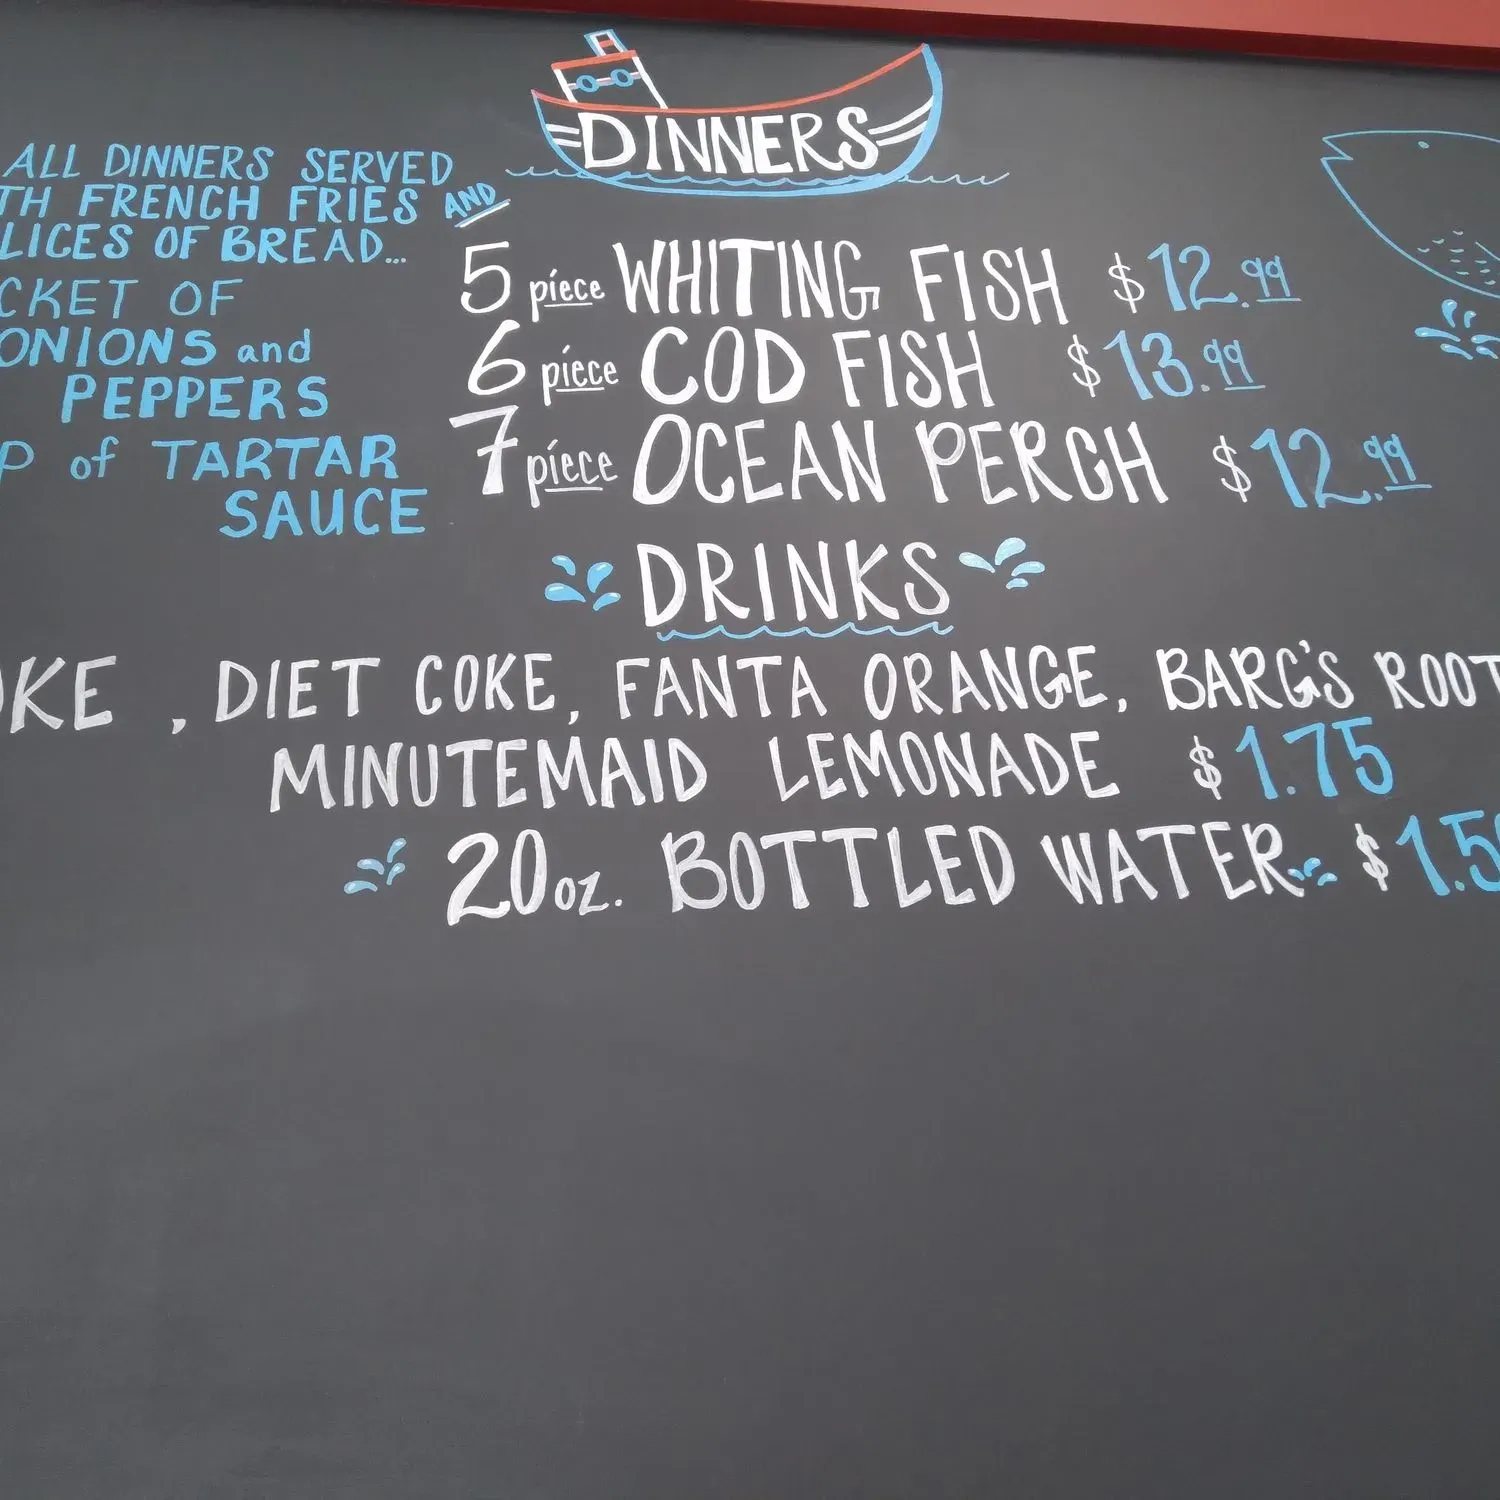 DINNERS
ALL DINNERS SERVED
TH FRENCH FRIES AND
LICES OF BREAD...
CKET OF
ONIONS and
PEPPERS
P of TARTAR
SAUCE
5 piece WHITING FISH $12.99
6 piece COD FISH $13.99
7 piece OCEAN PERCH $12.99
DRINKS
OKE , DIET COKE, FANTA ORANGE, BARG'S ROOT
MINUTEMAID LEMONADE $1.75
20oz. BOTTLED WATER $1.50